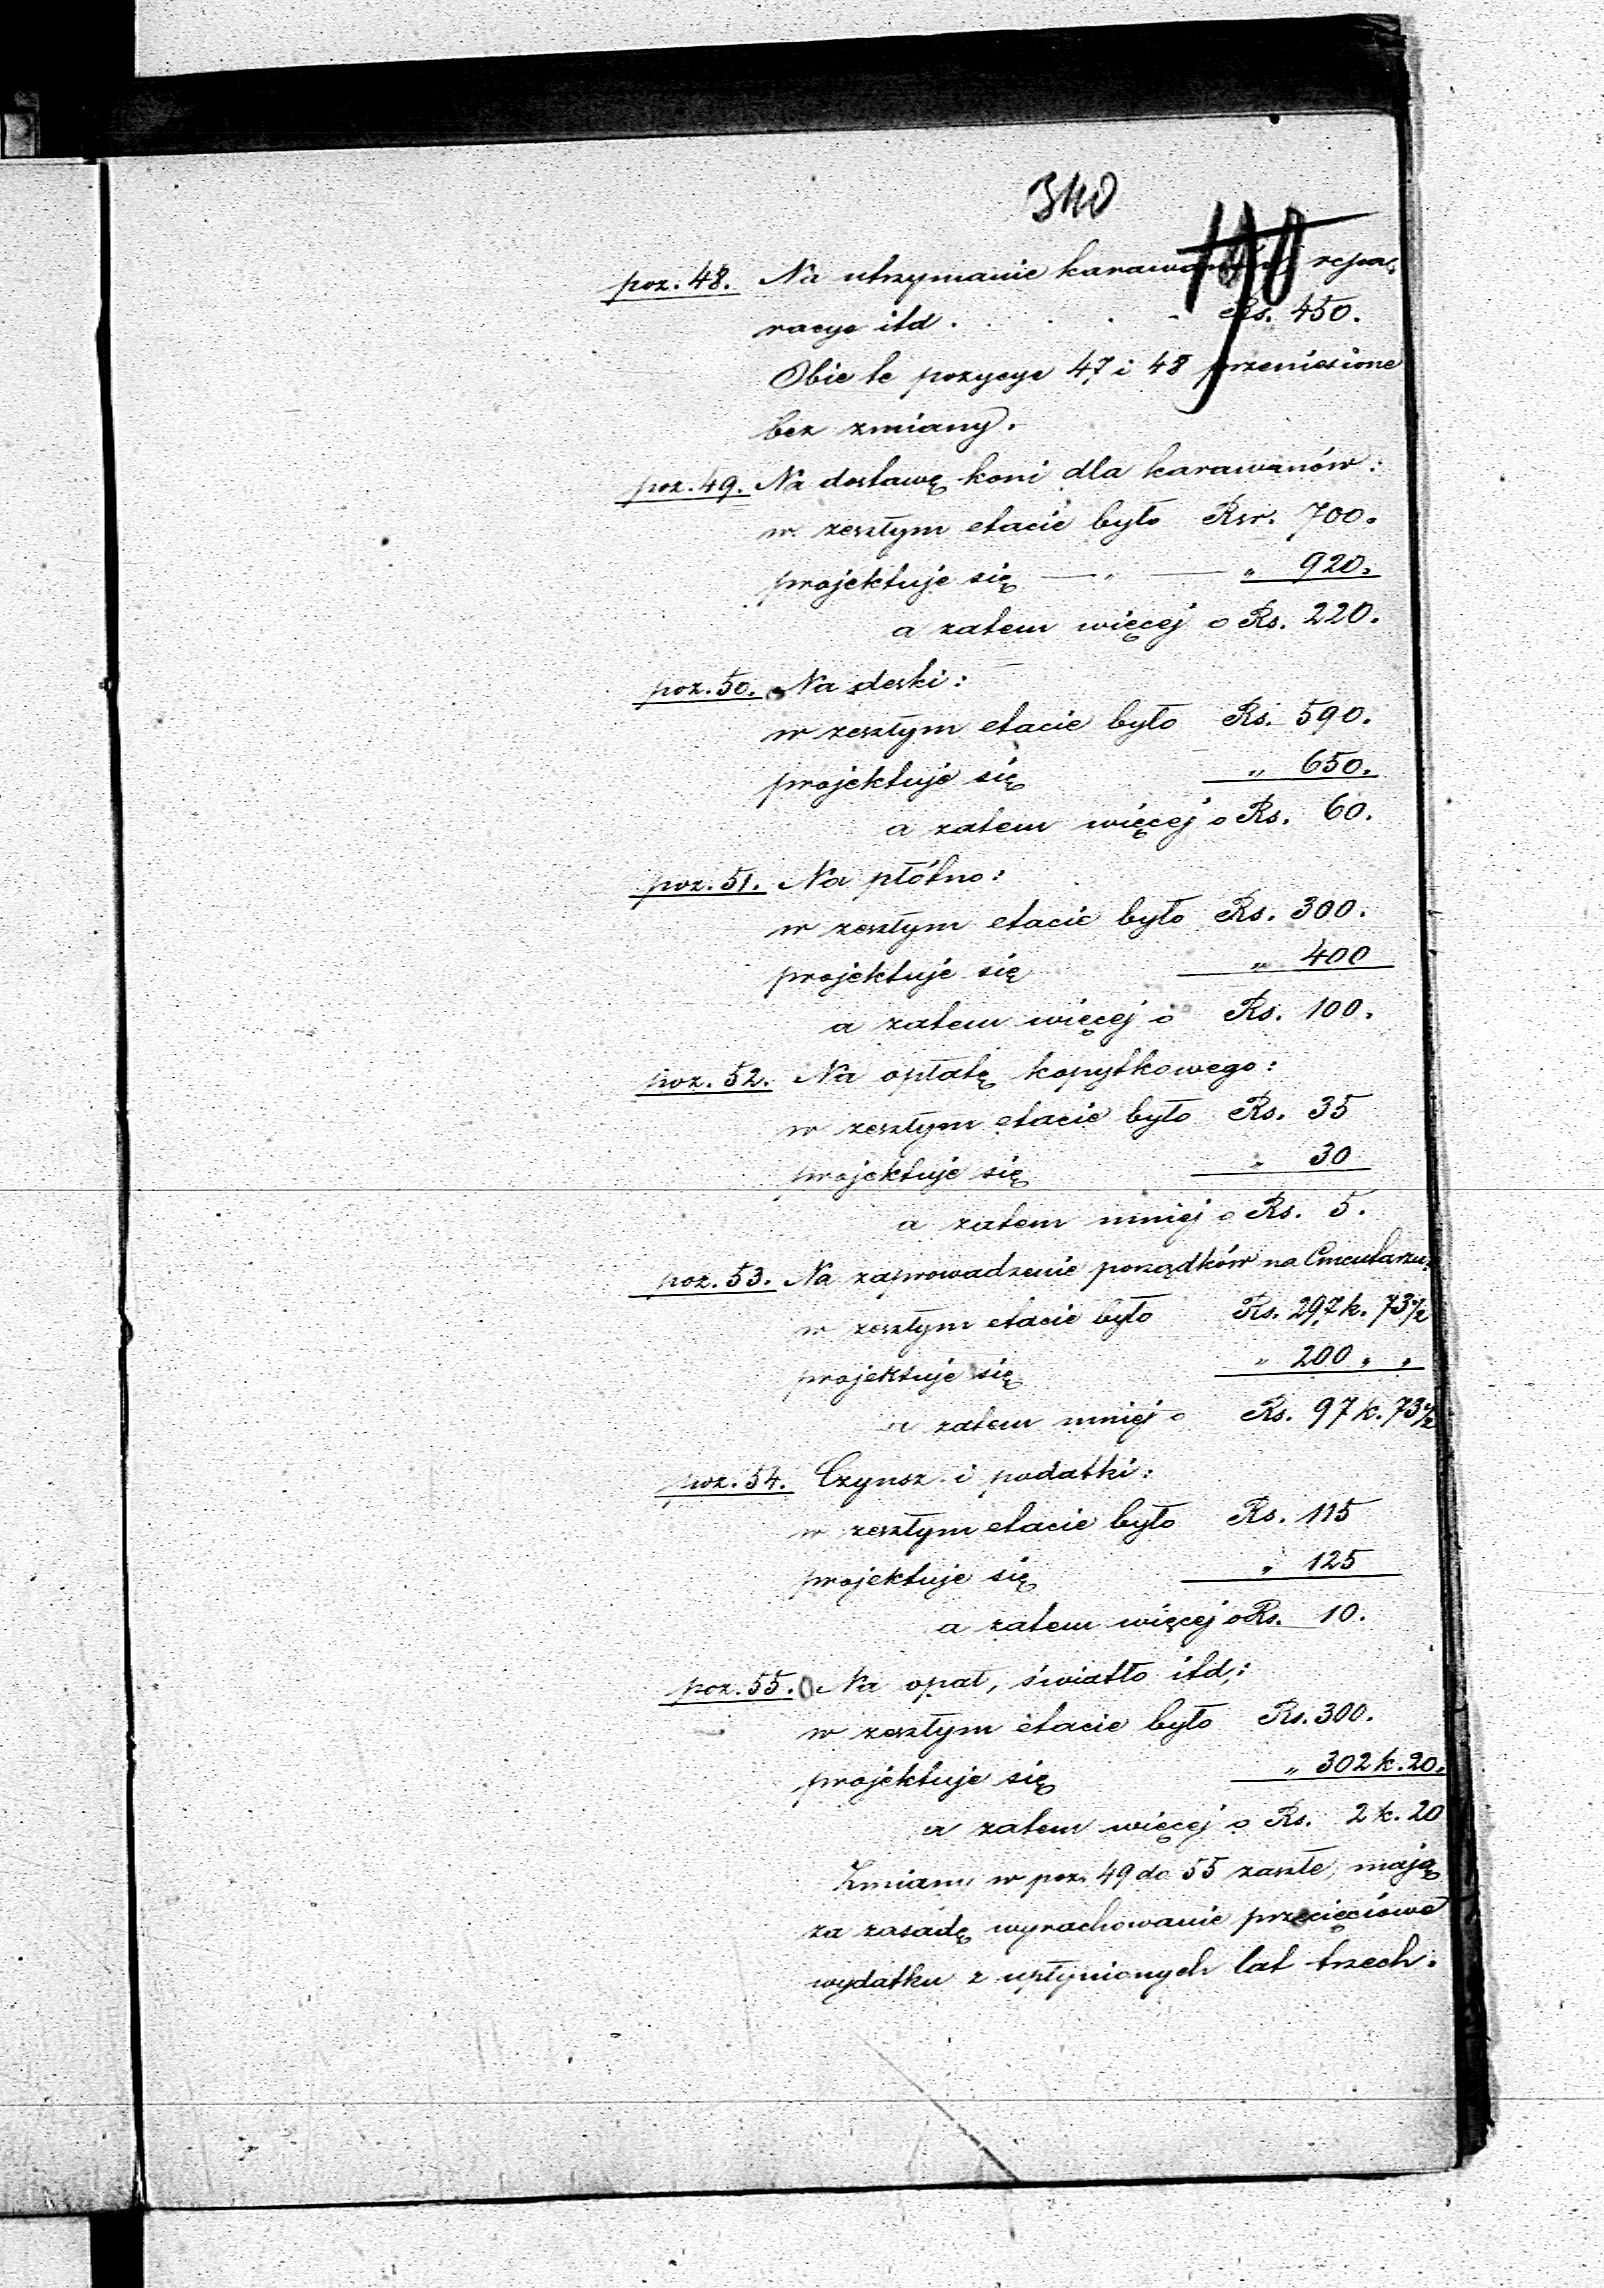 340
190
poz. 48. Na utrzymanie karawanów, repa-
racye itd. . . . . Rs. 450.
Obie te pozycye 47 i 48 przeniesione
bez zmiany.
poz. 49. Na dostawę koni dla karawanów:
w zeszłym etacie było Rsr. 700.
projektuje się — „ — „ 920.
a zatem więcej o Rs. 220.
poz. 50. Na deski:
w zeszłym etacie było Rs. 590.
projektuje się „ 650.
a zatem więcej o Rs. 60.
poz. 51. Na płótno:
w zeszłym etacie było Rs. 300.
projektuje się „ 400
a zatem więcej o Rs. 100.
poz. 52. Na opłatę kopytkowego:
w zeszłym etacie było Rs. 35
projektuje się „ 30
a zatem mniej o Rs. 5.
poz. 53. Na zaprowadzenie porządków na Cmentarzu:
w zeszłym etacie było Rs. 297 k. 73½
projektuje się „ 200 „ „
a zatem mniej o Rs. 97 k. 73½
poz. 54. Czynsz i podatki:
w zeszłym etacie było Rs. 115
projektuje się „ 125
a zatem więcej o Rs. 10.
poz. 55. Na opał, światło itd:
w zeszłym etacie było Rs. 300.
projektuje się „ 302 k. 20.
a zatem więcej o Rs. 2 k. 20
Zmiany w poz. 49 do 55 zaszłe, mają
za zasadę wyrachowanie przecięciowe
wydatku z upłynionych lat trzech.